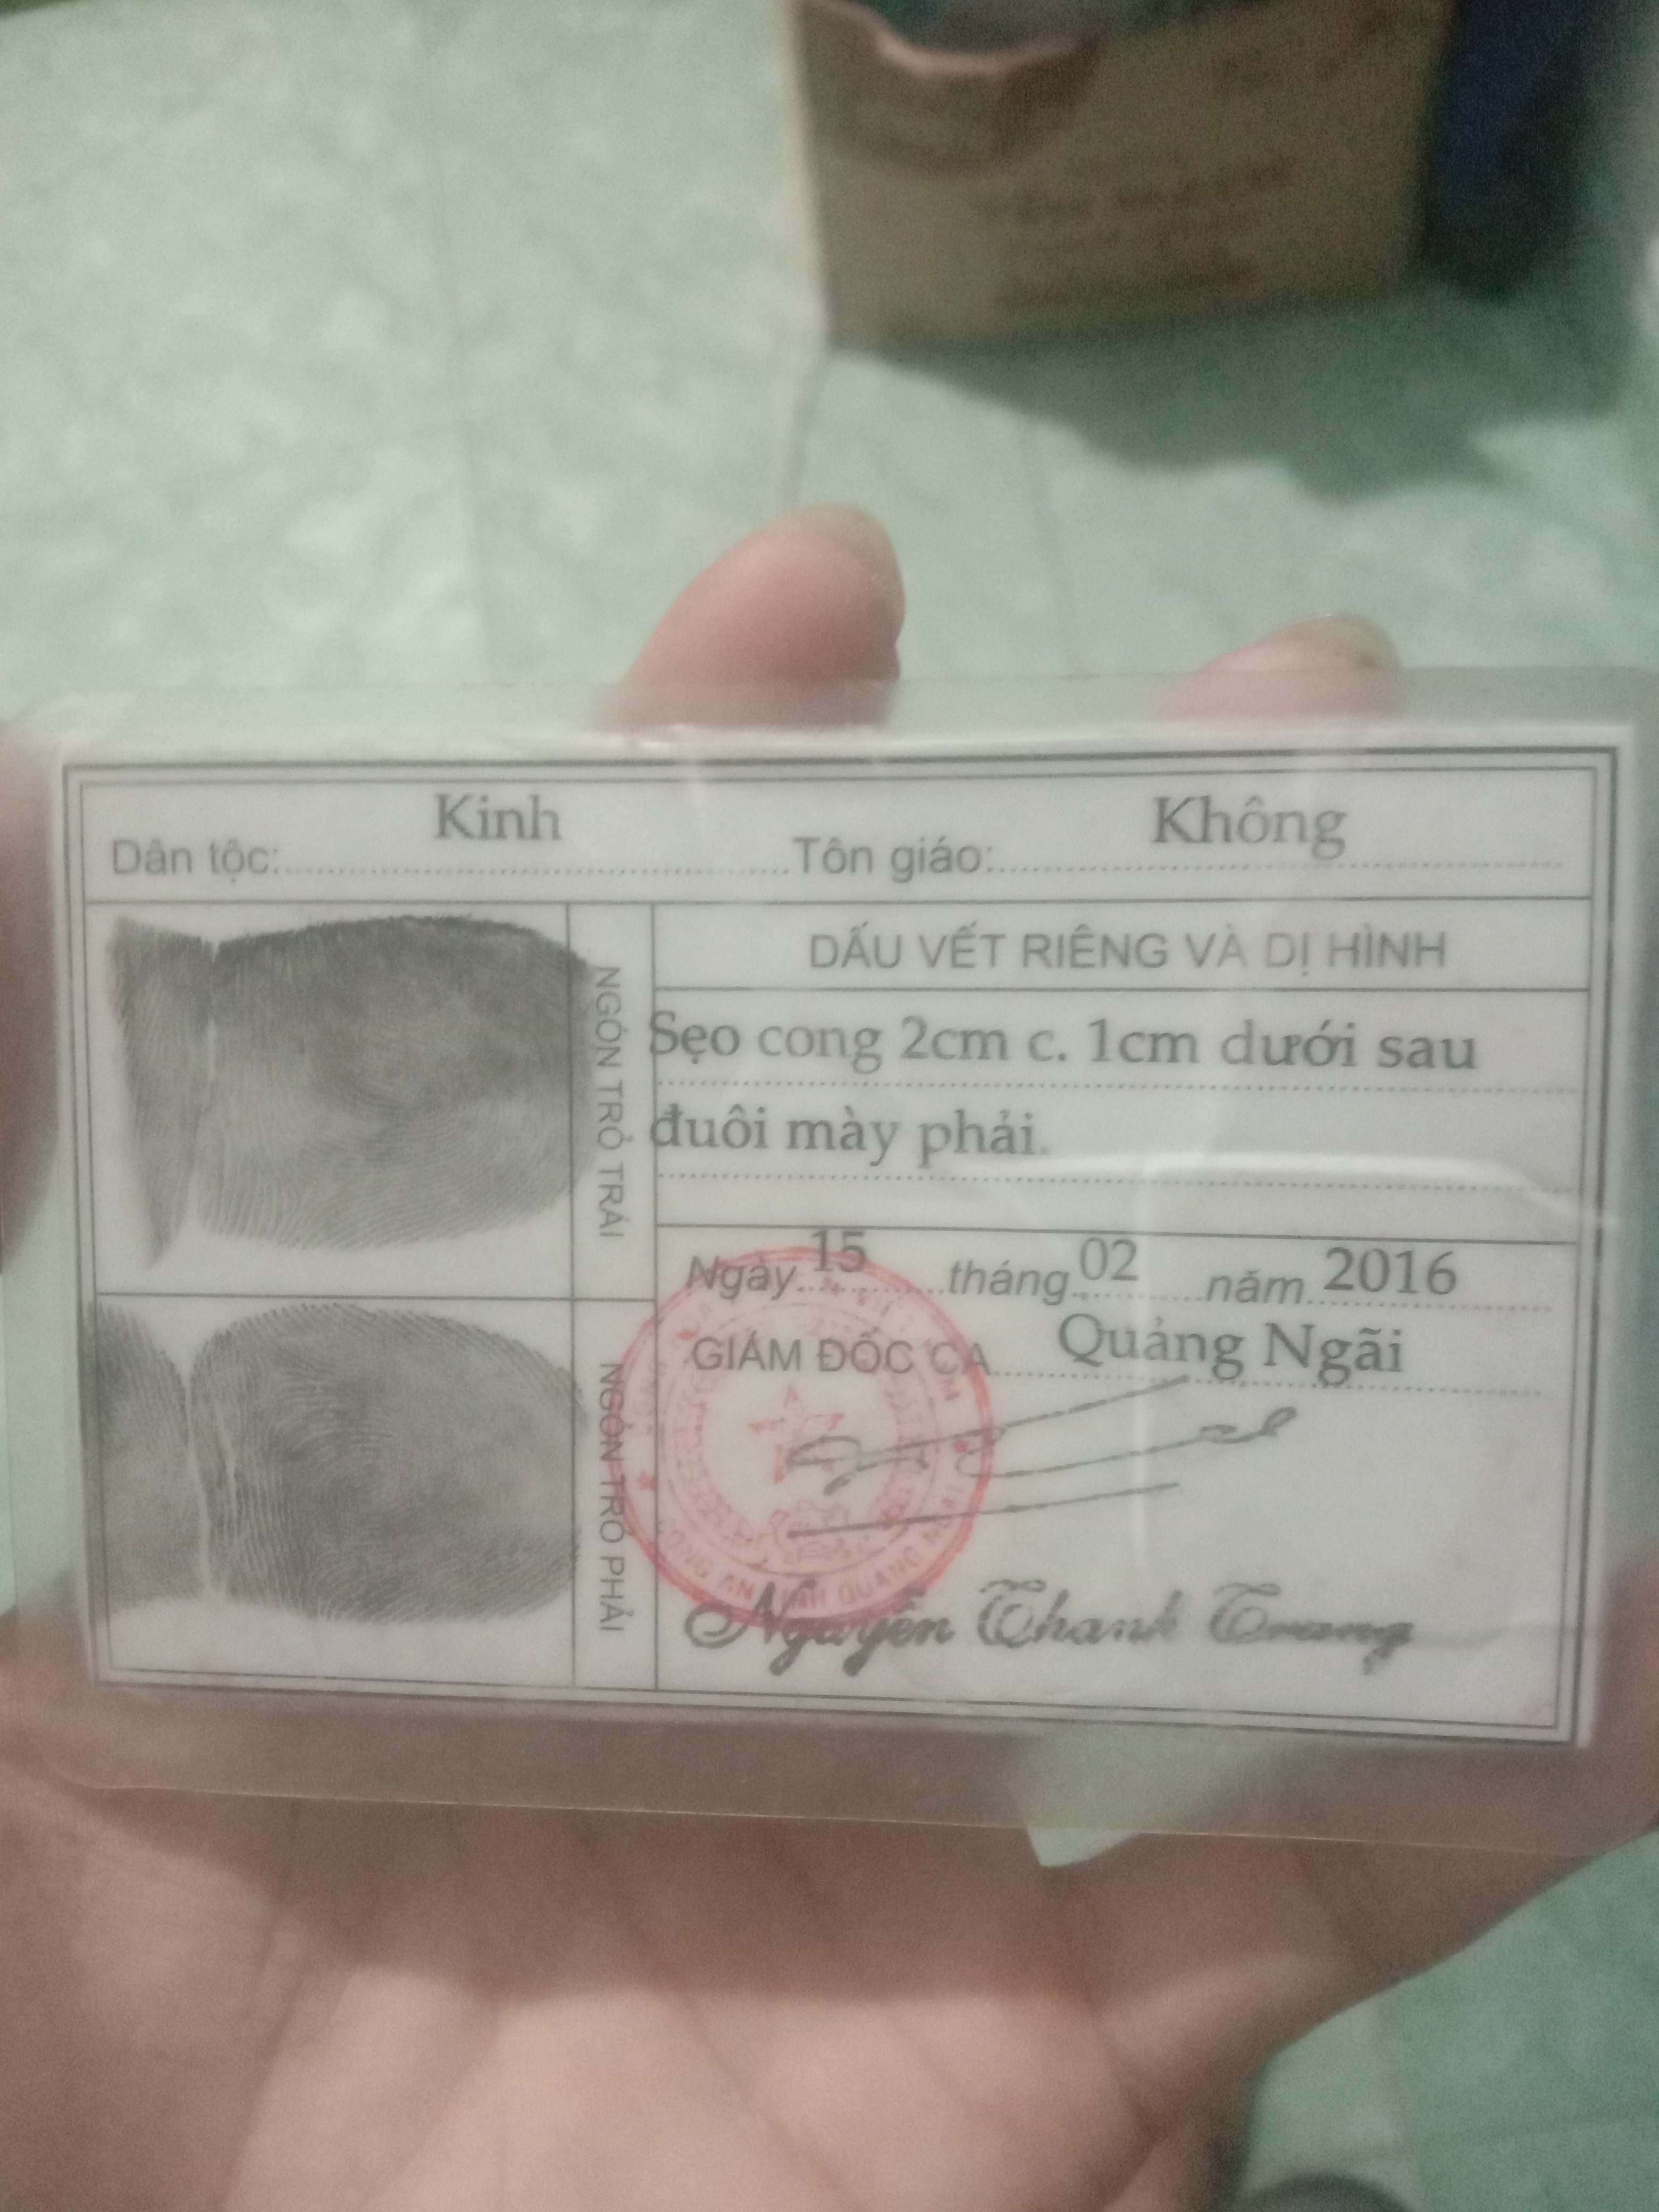 Dân tộc: Kinh Tôn giáo: Không
NGÓN TRỎ TRÁI
DẤU VẾT RIÊNG VÀ DỊ HÌNH
Sẹo cong 2cm c. 1cm dưới sau
đuôi mày phải.
NGÓN TRỎ PHẢI
Ngày 15 tháng 02 năm 2016
GIÁM ĐỐC CA Quảng Ngãi
CÔNG AN TỈNH QUẢNG NGÃI
Nguyễn Thanh Trang